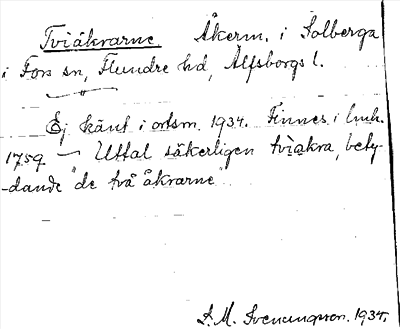 Tviåkrarne Åkerm. i Solberga
i Fors sn, Flundre hd, Älfsborgs l.
Ej känt i ortsm. 1934. Finnes i lmh.
1759. — Uttal säkerligen tviakra, bety-
-dande "de två åkrarne"
S. M. Svenungsson. 1934.